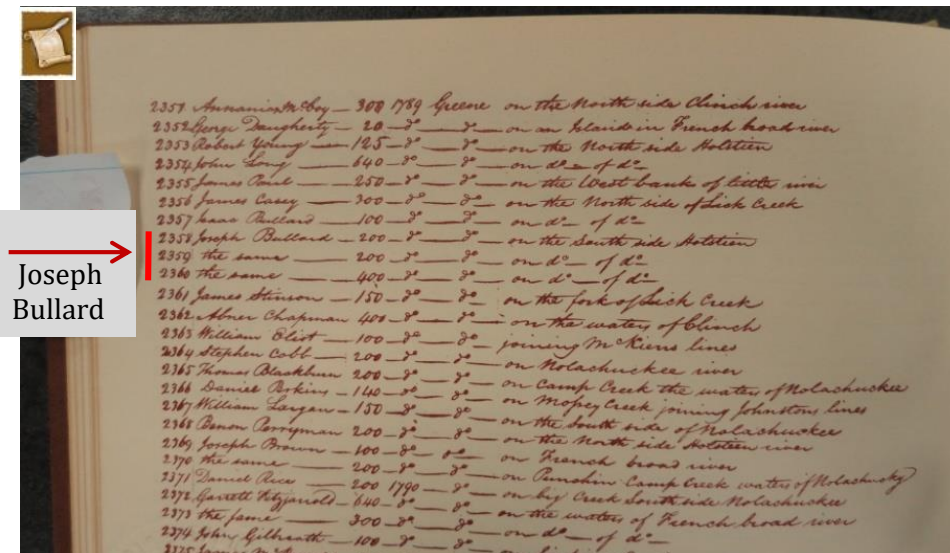 2351 Annanias McCoy — 300 1789 Greene on the North side Clinch river
2352 George Daugherty — 20 — do — do — on an Islands in French broad river
2353 Robert Young — 125 — do — do — on the North side Holsteen
2354 John Long — 640 — do — do — on do — of do —
2355 James Paul — 250 — do — do — on the West bank of little river
2356 James Casey — 300 — do — do — on the North side of Lick Creek
2357 Isaac Bullard — 100 — do — do — on do — of do —
2358 Joseph Bullard — 200 — do — do — on the South side Holsteen
2359 the same — 200 — do — do — on do — of do —
2360 the same — 400 — do — do — on do — of do —
Joseph
Bullard
2361 James Stinson — 150 — do — do — on the fork of Lick Creek
2362 Abner Chapman 400 — do — do — on the waters of Clinch
2363 William Eliot — 100 — do — do — joining McKiens lines
2364 Stephen Cobb — 200 — do — do — on Nolachuckee river
2365 Thomas Blackburn 200 — do — do — on Camp Creek the waters of Nolachuckee
2366 Daniel — 140 — do — do — on Creek joining Johnstons lines
2367 William — 150 — do — do — on the South side of Nolachuckee
2368 Benon Perryman 200 — do — do — on the North side Holsteen river
2369 Joseph Brown — 100 — do — do — on French broad river
2370 the same — 200 — do — do — on Punchin Camp Creek waters of Nolachucky
2371 Daniel Rice — 200 1790 — do — on big Creek South side Nolachuckee
2372 Garrett Fitzjarrols — 640 — do — do — on the waters of French broad river
2373 the same — 300 — do — do — on do — of do —
2374 John Gilbreath — 100 — do — do
2375 James